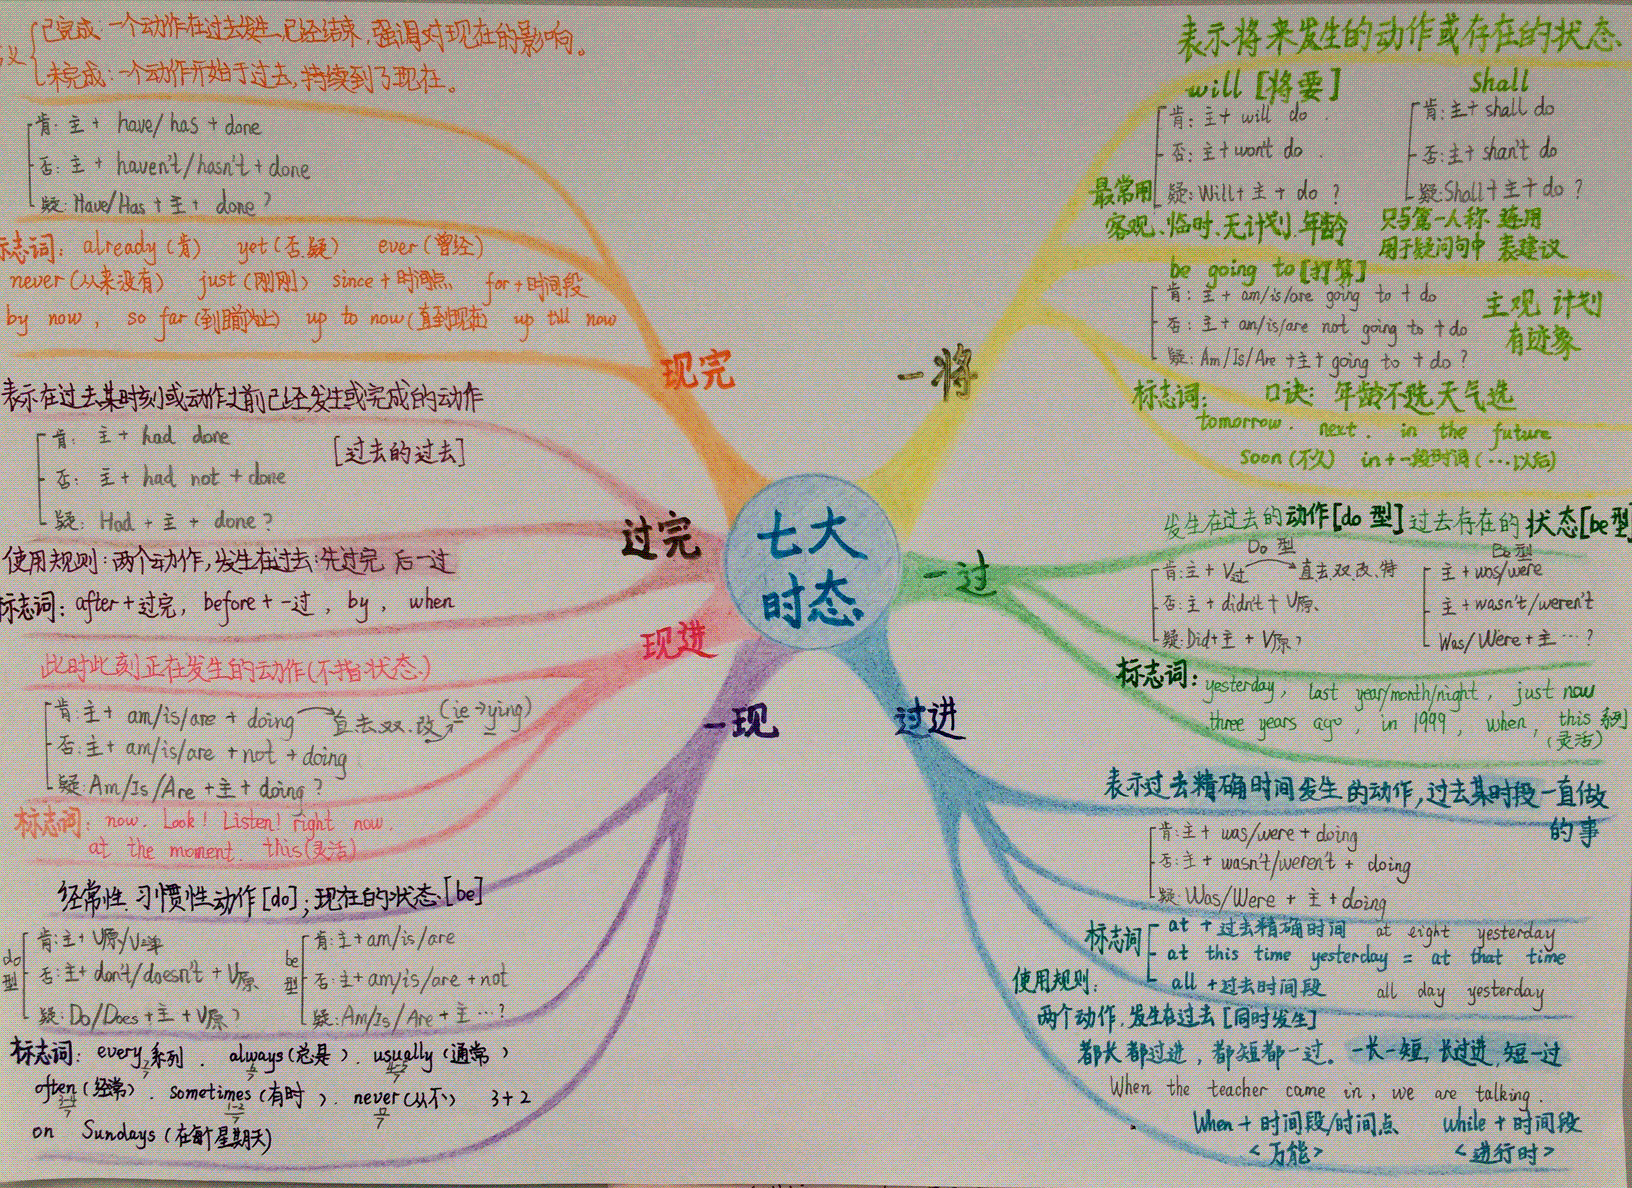 七大
时态
现完
已完成:一个动作在过去发生,已经结束,强调对现在的影响。
未完成:一个动作开始于过去,持续到了现在。
肯:主+ have/has + done
否:主+ haven't/hasn't + done
疑:Have/Has + 主 + done ?
标志词: already (肯) yet (否.疑) ever (曾经)
never (从来没有) just (刚刚) since + 时间点 for + 时间段
by now , so far (到目前为止) up to now (直到现在) up till now
过完
表示在过去某时刻或动作之前已经发生或完成的动作
[过去的过去]
肯: 主 + had done
否: 主 + had not + done
疑: Had + 主 + done ?
使用规则:两个动作,发生在过去:先过完 后一过
标志词: after + 过完 , before + 一过 , by , when
现进
此时此刻正在发生的动作(不指状态)
肯:主+ am/is/are + doing 直.去.双.改 (ie→ying)
否:主+ am/is/are + not + doing
疑:Am/Is/Are + 主 + doing ?
标志词: now . Look ! Listen! right now .
at the moment . this (灵活)
一现
经常性 习惯性动作[do];现在的状态[be]
do型
肯:主+ V原/V三单
否:主+ don't/doesn't + V原
疑:Do/Does + 主 + V原 ?
be型
肯:主+ am/is/are
否:主+ am/is/are + not
疑:Am/Is/Are + 主 …?
标志词: every 系列 . always (总是) . usually (通常)
often (经常) . sometimes (有时) . never (从不) 3+2
on Sundays (在每个星期天)
一将
表示将来发生的动作或存在的状态
will [将要]
肯: 主+ will do .
否: 主+ won't do .
疑: Will + 主 + do ?
最常用
客观、临时、无计划、年龄
shall
肯:主+ shall do
否:主+ shan't do
疑:Shall + 主 + do ?
只与第一人称 连用
用于疑问句中 表建议
be going to [打算]
肯: 主 + am/is/are going to + do
否: 主 + am/is/are not going to + do
疑: Am/Is/Are + 主 + going to + do ?
主观 计划
有迹象
标志词: 口诀: 年龄不选天气选
tomorrow . next . in the future
soon (不久) in + 一段时间 (…以后)
一过
发生在过去的动作[do 型] 过去存在的 状态[be型]
Do 型
肯:主 + V过 直.去.双.改.特
否:主 + didn't + V原
疑:Did + 主 + V原 ?
Be型
主 + was/were
主 + wasn't/weren't
Was/Were + 主 …?
标志词: yesterday , last year/month/night , just now
three years ago , in 1999 , when , this 系列
(灵活)
过进
表示过去精确时间发生的动作,过去某时段一直做
的事
肯:主+ was/were + doing
否:主+ wasn't/weren't + doing
疑:Was/Were + 主 + doing
标志词
at + 过去精确时间 at eight yesterday
at this time yesterday = at that time
all + 过去时间段 all day yesterday
使用规则:
两个动作,发生在过去[同时发生]
都长都过进,都短都一过。一长一短,长过进,短一过
When the teacher came in , we are talking .
When + 时间段/时间点 while + 时间段
<万能> <进行时>